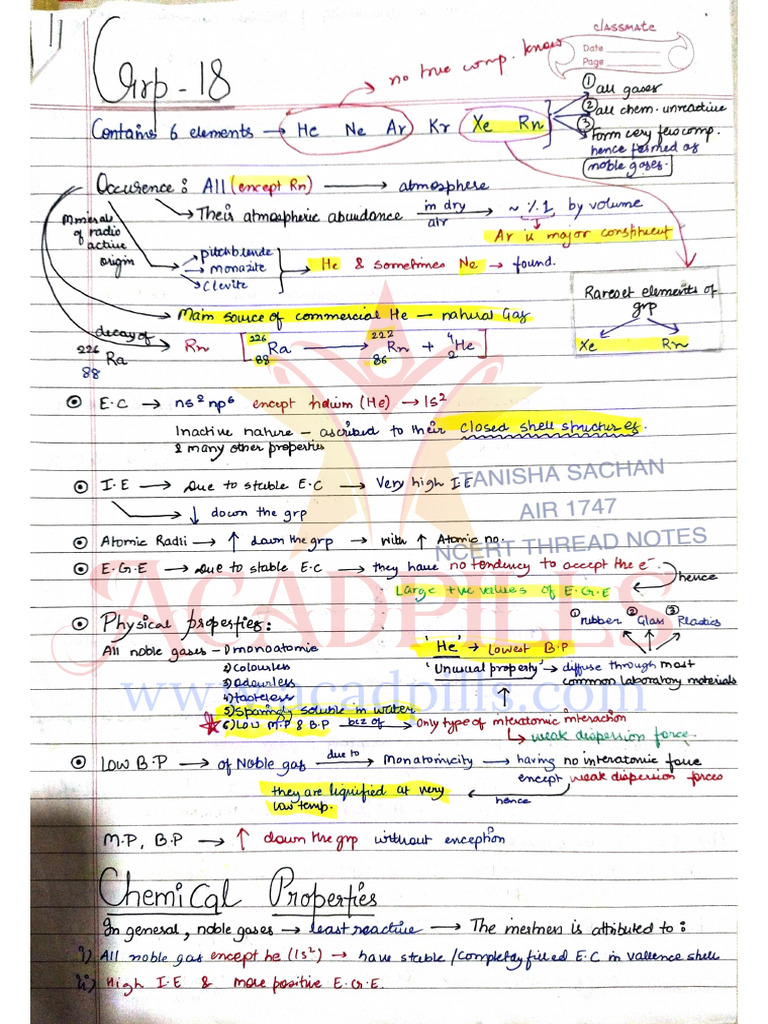 classmate
Date
Page
Grp - 18
no true comp. know
Contains 6 elements → He Ne Ar Kr Xe Rn
① all gases
② all chem. unreactive
③ Form very few comp.
hence formed as
noble gases.
Occurence : All (except Rn) → atmosphere
Their atmospheric abundance in dry air → ~ %1 by volume
Ar is major constituent
Mineral of radio active origin
pitchblende
monazite
clevite
He & sometimes Ne → found.
Rarest elements of grp
Xe Rn
Main source of commercial He — natural Gas
decay of
226 Ra 88
Rn [ 226 Ra 88 → 222 Rn 86 + 4 He 2 ]
E.C → ns² np⁶ except helium (He) → 1s²
Inactive nature - ascribed to their closed shell structures.
& many other properties
I.E → Due to stable E.C → Very high I.E
TANISHA SACHAN
↓ down the grp
AIR 1747
Atomic Radii → ↑ down the grp → with ↑ Atomic no.
NCERT THREAD NOTES
E.G.E → Due to stable E.C → they have no tendency to accept the e⁻.
hence
Large +ve values of E.G.E
ACADPILLS
Physical properties :
① rubber ② Glass ③ Plastics
All noble gases - 1) monoatomic
'He' → lowest B.P
2) colourless
'Unusual property' → diffuse through most
3) odourless
common laboratory materials
4) tasteless
www.acadpills.com
5) Sparingly soluble in water
6) Low M.P & B.P bcz of → Only type of interatomic interaction
↳ weak dispersion force.
Low B.P → of Noble gas due to → Monatomicity → having no interatomic force
except weak dispersion forces
hence
they are liquified at very
low temp.
M.P, B.P → ↑ down the grp without exception
Chemical Properties
In general, noble gases → least reactive → The inertness is attributed to :
i) All noble gas except he (1s²) → have stable/completely filled E.C in vallence shell
ii) High I.E & more positive E.G.E.